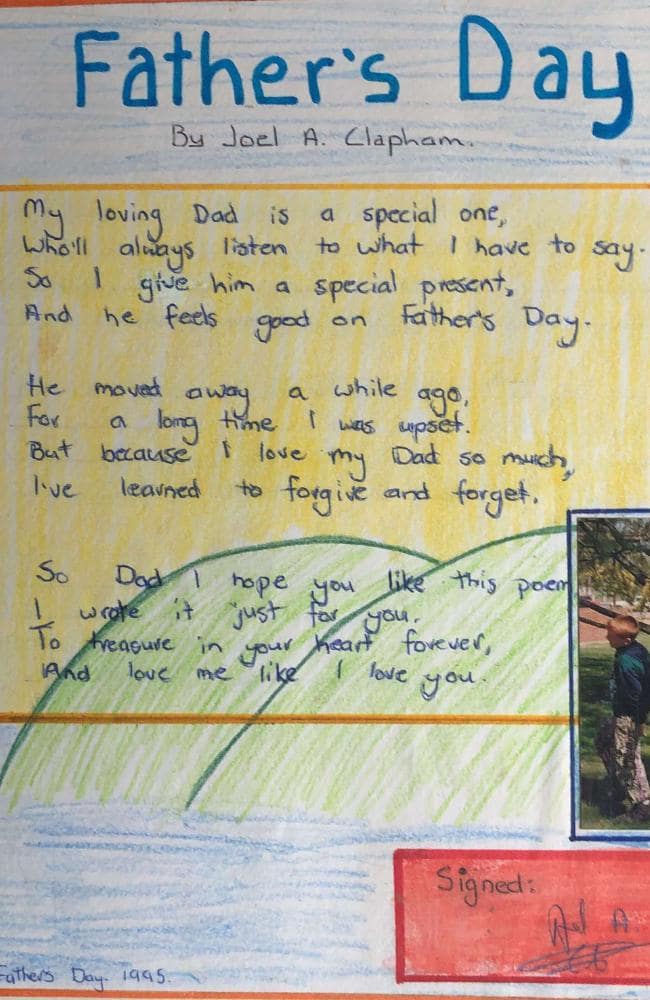 Father's Day
By Joel A. Clapham.
My loving Dad is a special one,
Who'll always listen to what I have to say.
So I give him a special present,
And he feels good on Father's Day.
He moved away a while ago,
For a long time I was upset.
But because I love my Dad so much,
I've learned to forgive and forget.
So Dad I hope you like this poem
I wrote it just for you.
To treasure in your heart forever,
And love me like I love you.
Signed:
A.
Fathers Day. 1995.